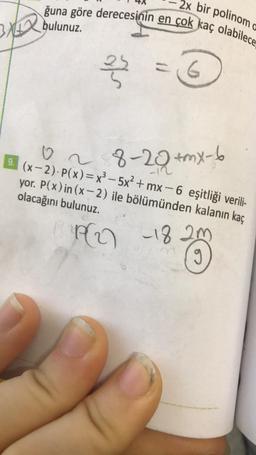 2x bir polinom
ğuna göre derecesinin en çok kaç olabilece
bulunuz.
25/5 = 6
8-20+mx-6
9. (x-2)·P(x)=x³-5x²+mx-6 eşitliği verili-
yor. P(x) in (x-2) ile bölümünden kalanın kaç
olacağını bulunuz.
P(2) -18 2m
9